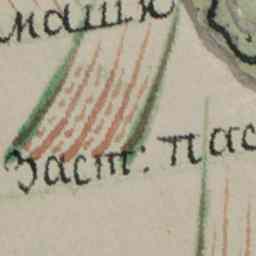 машю
Заст: пас